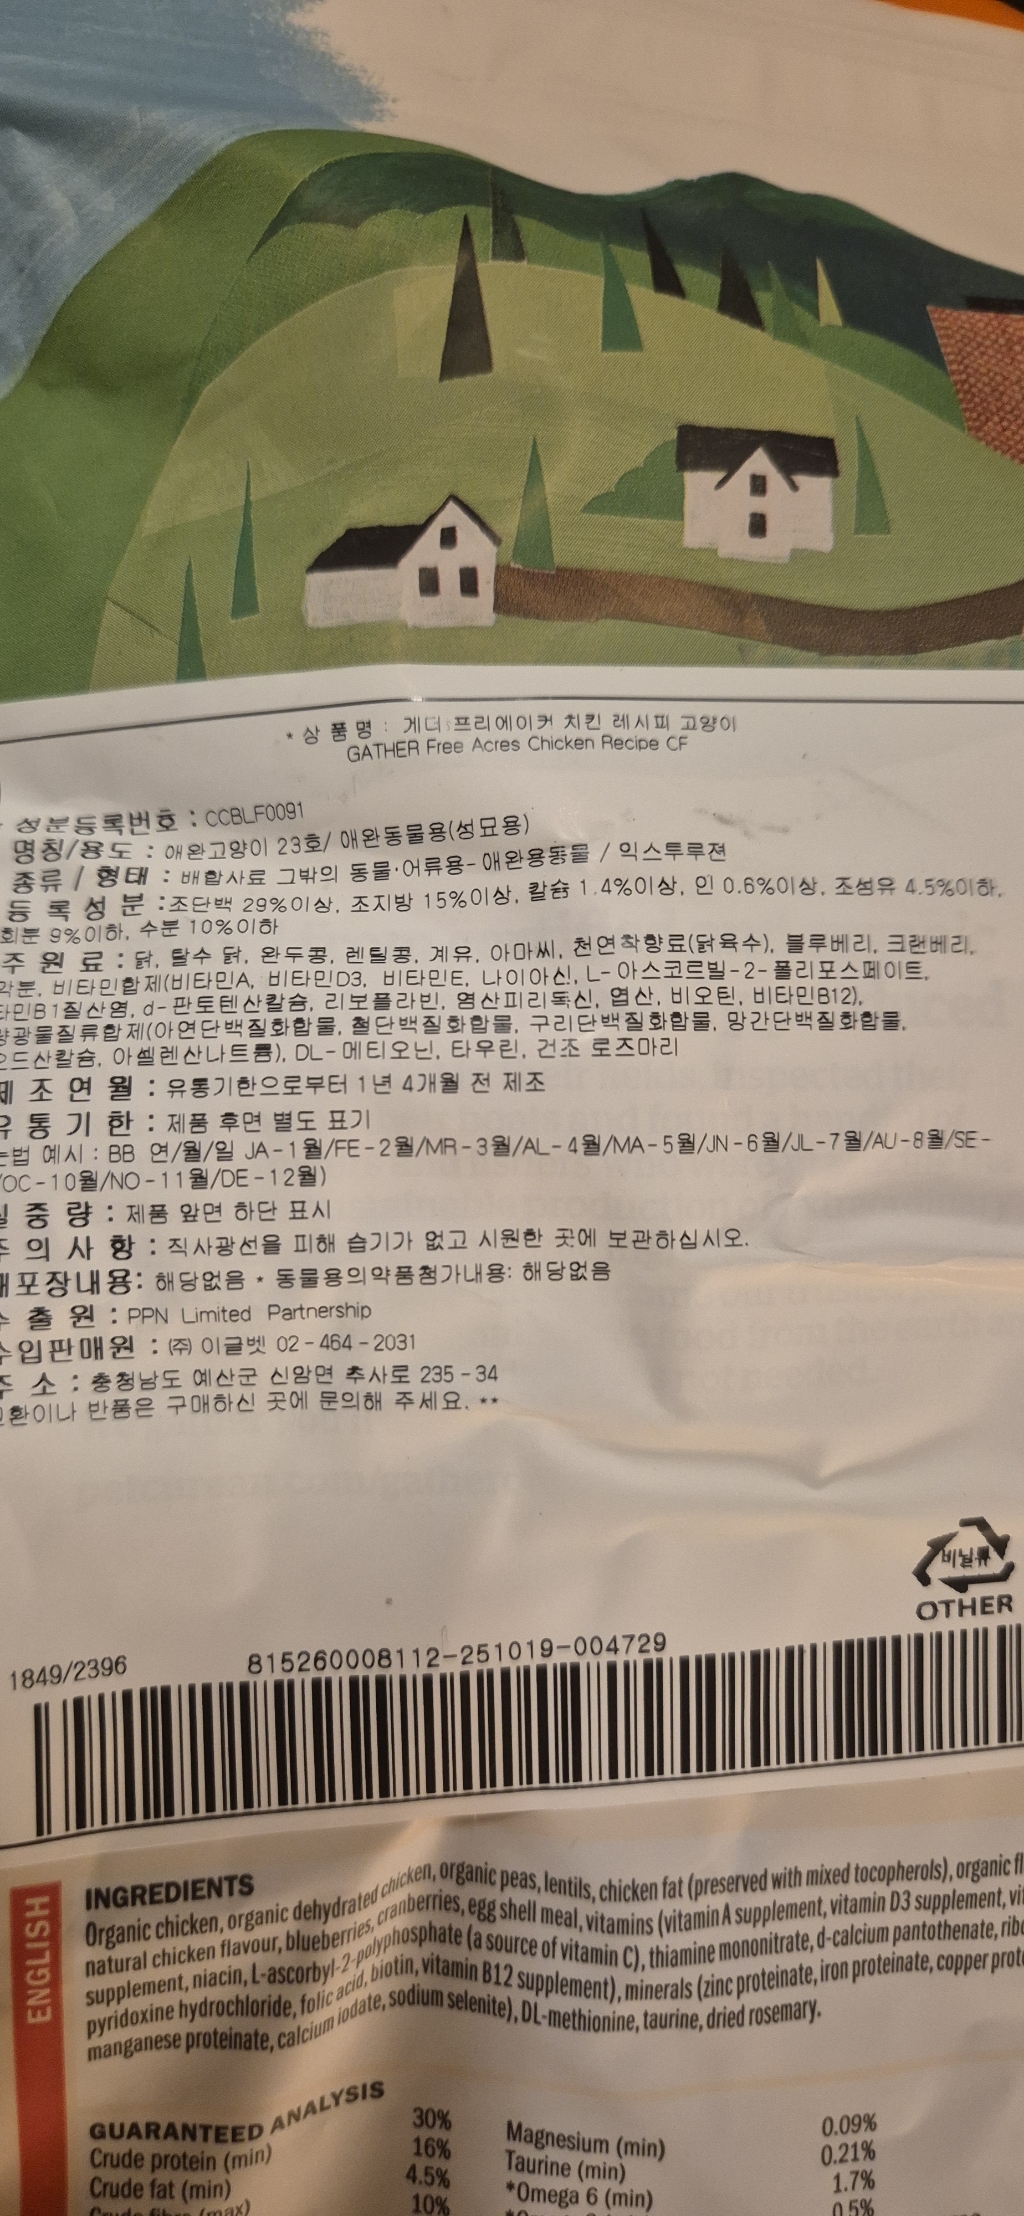 * 상 품 명 : 게더 프리에이커 치킨 레시피 고양이
GATHER Free Acres Chicken Recipe CF
성분등록번호 : CCBLF0091
명칭/용도 : 애완고양이 23호/ 애완동물용(성묘용)
종류 / 형태 : 배합사료 그밖의 동물·어류용- 애완용동물 / 익스투루젼
등 록 성 분 : 조단백 29%이상, 조지방 15%이상, 칼슘 1.4%이상, 인 0.6%이상, 조섬유 4.5%이하,
회분 9%이하, 수분 10%이하
주 원 료 : 닭, 탈수 닭, 완두콩, 렌틸콩, 계유, 아마씨, 천연착향료(닭육수), 블루베리, 크랜베리,
비타민합제(비타민A, 비타민D3, 비타민E, 나이아신, L-아스코르빌-2-폴리포스페이트,
타민B1질산염, d-판토텐산칼슘, 리보플라빈, 염산피리독신, 엽산, 비오틴, 비타민B12),
광물질류합제(아연단백질화합물, 철단백질화합물, 구리단백질화합물, 망간단백질화합물,
드산칼슘, 아셀렌산나트륨), DL-메티오닌, 타우린, 건조 로즈마리
제 조 연 월 : 유통기한으로부터 1년 4개월 전 제조
유 통 기 한 : 제품 후면 별도 표기
는법 예시 : BB 연/월/일 JA-1월/FE-2월/MR-3월/AL-4월/MA-5월/JN-6월/JL-7월/AU-8월/SE-
/OC-10월/NO-11월/DE-12월)
중 량 : 제품 앞면 하단 표시
주 의 사 항 : 직사광선을 피해 습기가 없고 시원한 곳에 보관하십시오.
재포장내용: 해당없음 * 동물용의약품첨가내용: 해당없음
수 출 원 : PPN Limited Partnership
수입판매원 : ㈜ 이글벳 02-464-2031
주 소 : 충청남도 예산군 신암면 추사로 235-34
교환이나 반품은 구매하신 곳에 문의해 주세요. **
비닐류
OTHER
1849/2396
815260008112-251019-004729
ENGLISH
INGREDIENTS
Organic chicken, organic dehydrated chicken, organic peas, lentils, chicken fat (preserved with mixed tocopherols), organic fl
natural chicken flavour, blueberries, cranberries, egg shell meal, vitamins (vitamin A supplement, vitamin D3 supplement, vi
supplement, niacin, L-ascorbyl-2-polyphosphate (a source of vitamin C), thiamine mononitrate, d-calcium pantothenate, ribo
pyridoxine hydrochloride, folic acid, biotin, vitamin B12 supplement), minerals (zinc proteinate, iron proteinate, copper prote
manganese proteinate, calcium iodate, sodium selenite), DL-methionine, taurine, dried rosemary.
GUARANTEED ANALYSIS
Crude protein (min) 30% Magnesium (min) 0.09%
Crude fat (min) 16% Taurine (min) 0.21%
Crude fibre (max) 4.5% *Omega 6 (min) 1.7%
10% 0.5%